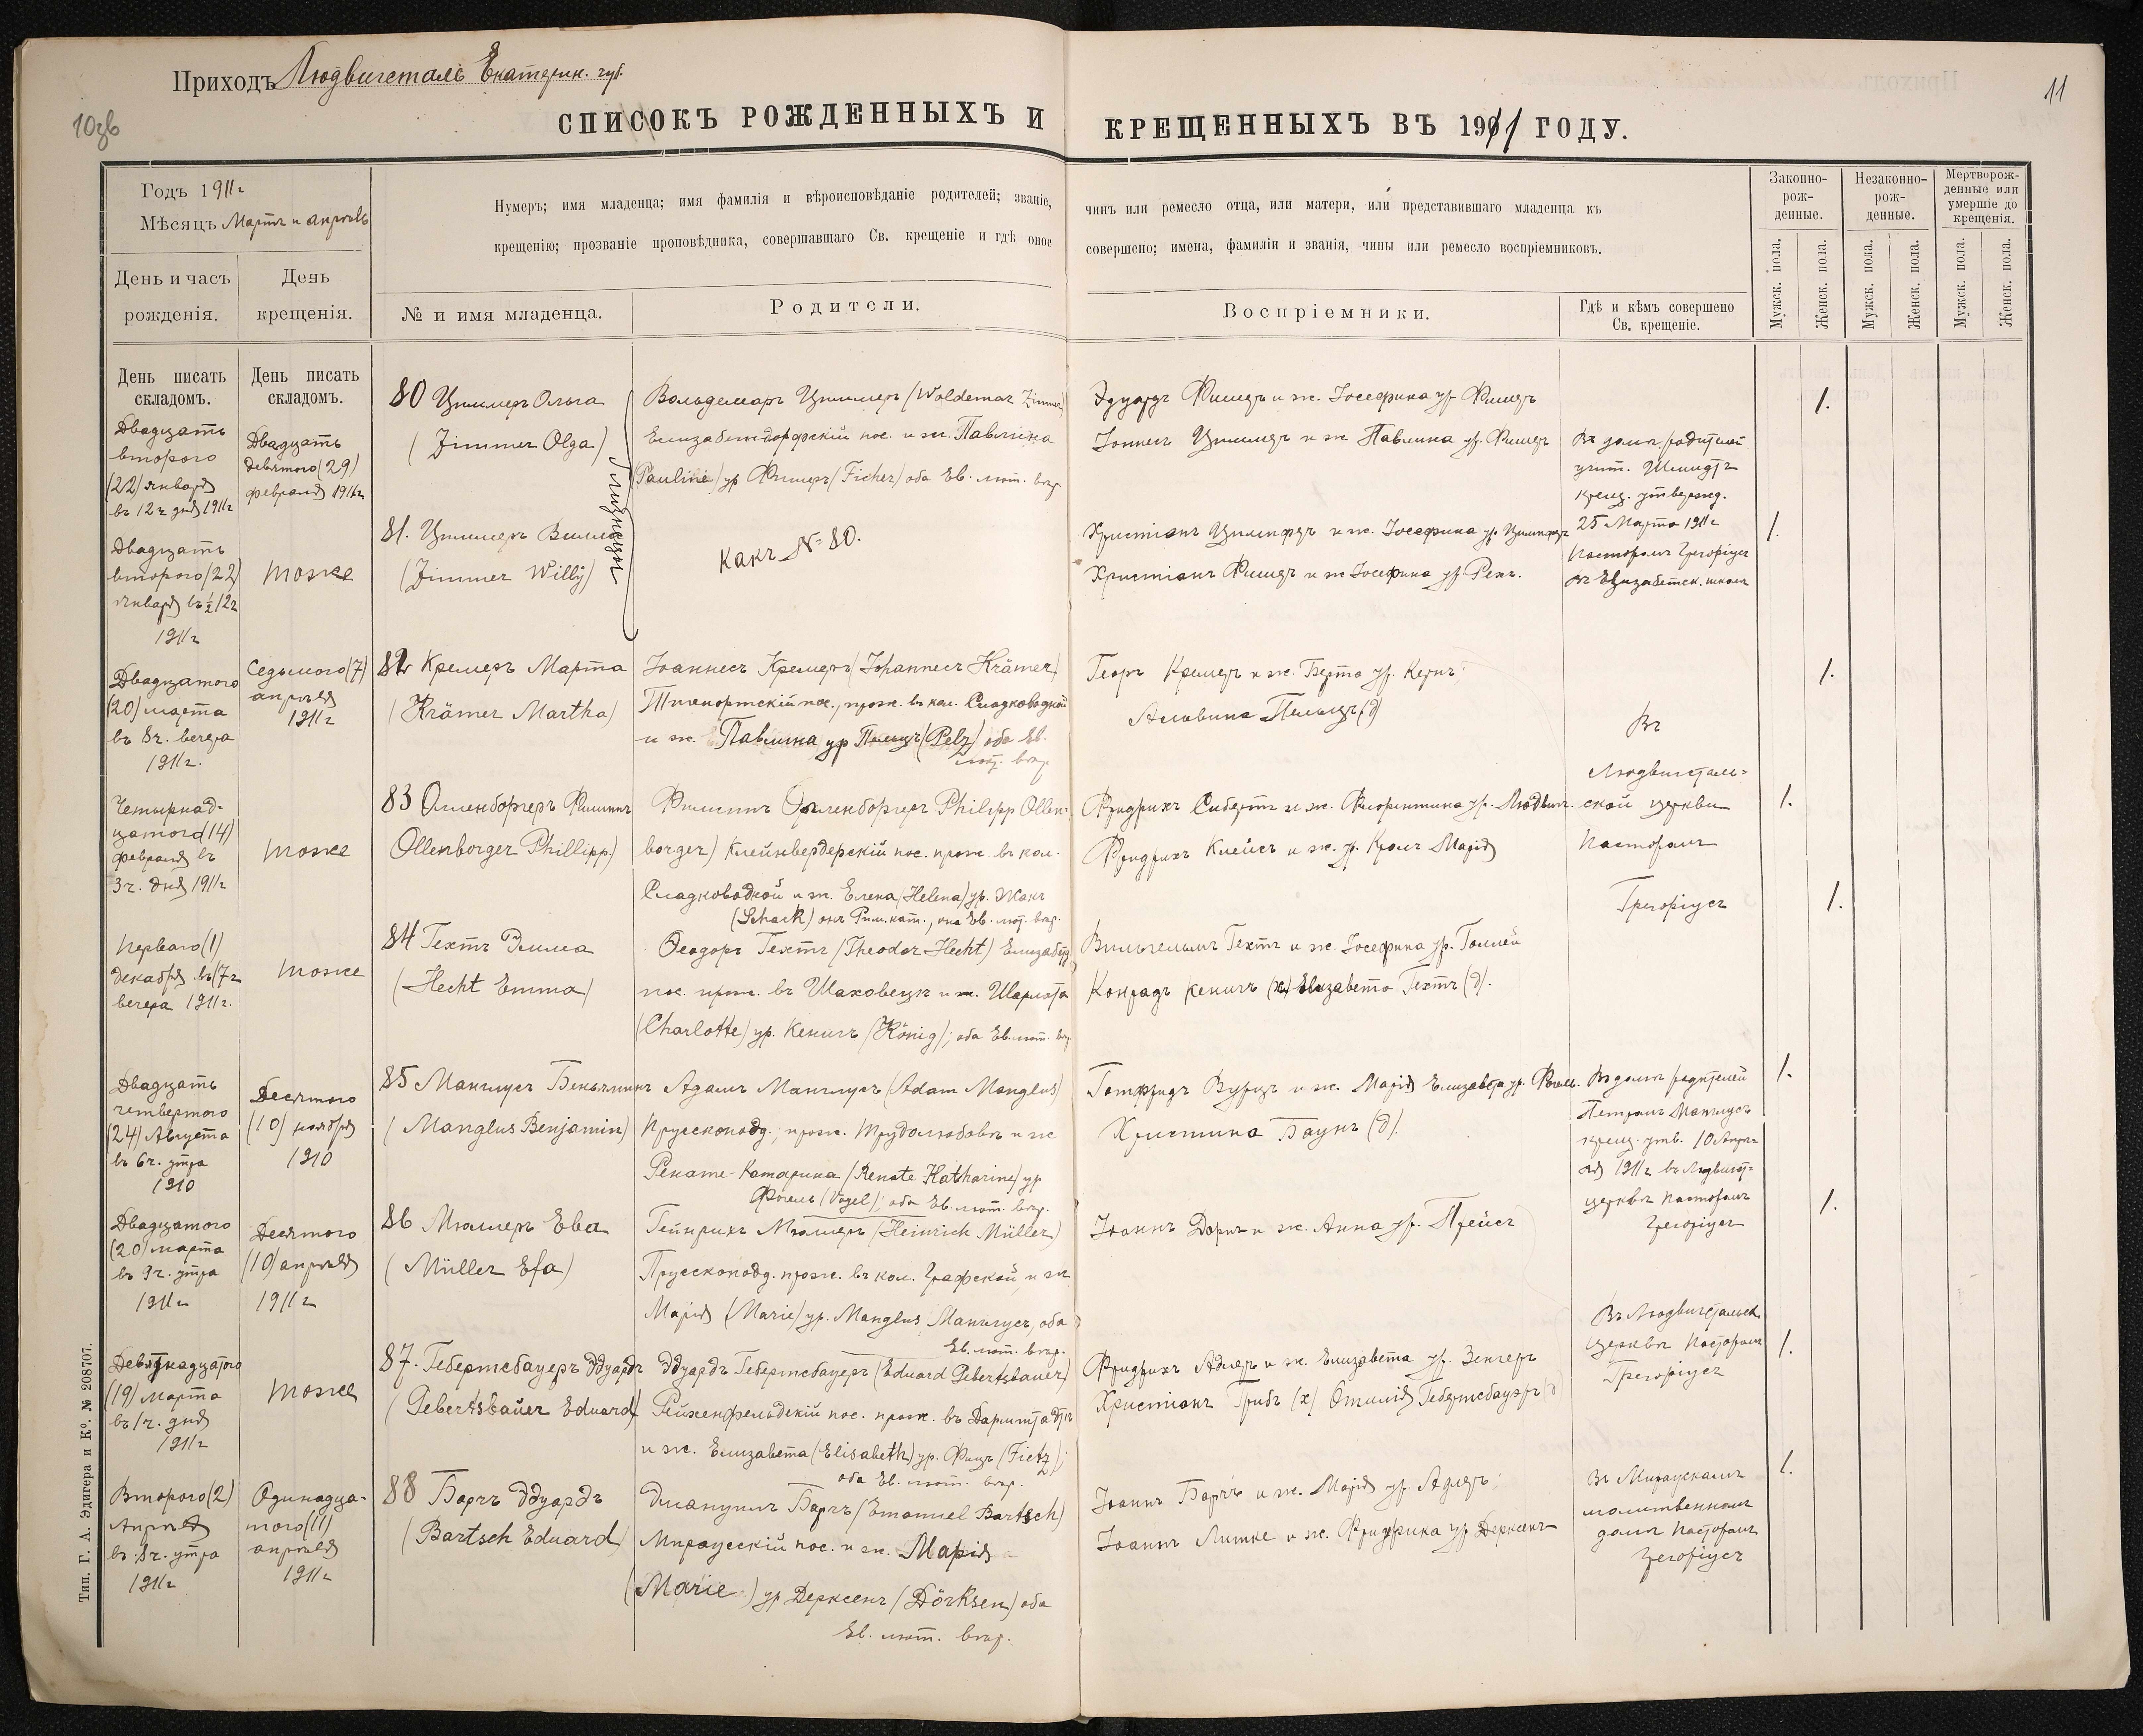 Приходъ Людвигсталь Екатерин. губ.
10зв
11
СПИСОКЪ РОЖДЕННЫХЪ И КРЕЩЕННЫХЪ ВЪ 1911 ГОДУ.
Годъ 1911г
Мѣсяцъ Мартъ и апрѣль
День и часъ рожденія.
День крещенія.
Нумеръ; имя младенца; имя фамилія и вѣроисповѣданіе родителей; званіе, чинъ или ремесло отца, или матери, или представившаго младенца къ
крещенію; прозваніе проповѣдника, совершавшаго Св. крещеніе и гдѣ оное совершено; имена, фамиліи и званія, чины или ремесло воспріемниковъ.
№ и имя младенца.
Родители.
Воспріемники.
Гдѣ и кѣмъ совершено
Св. крещеніе.
Законно-
рож-
денные.
Незаконно-
рож-
денные.
Мертворож-
денные или
умершіе до
крещенія.
Мужск. пола.
Женск. пола.
Мужск. пола.
Женск. пола.
Мужск. пола.
Женск. пола.
День писать
складомъ.
День писать
складомъ.
Двадцать
второго
(22) января
въ 12ч дня 1911г
Двадцать
девятого (29)
февраля 1911г
80 Циммеръ Ольга
(Zimmer Olga)
близнецы
Вольдемаръ Циммеръ (Woldemar Zimmer)
Елизабетдорфскій пос. и ж. Павлина
(Pauline) ур Фишеръ (Ficher) оба Ев. лют. вѣр.
Эдуардъ Фишеръ и ж. Іосефина ур. Фишеръ
Іоннесъ Циммеръ и ж Павлина ур. Фишеръ
Въ домѣ родителей
учит. Шмидтъ
крещ. утвержд.
25 Марта 1911г
Пасторомъ Грегоріусъ
въ Елизабетск. школѣ
1.
Двадцать
второго (22)
января въ ½12ч
1911г
тоже
81. Циммеръ Вилли
(Zimmer Willy)
Какъ № 80.
Христіанъ Фишеръ и ж Іосефина ур Рекъ.
1.
Двадцатого
(20) марта
въ 8ч. вечера
1911г.
Седьмого (7)
апрѣля
1911г
82 Кремеръ Марта
(Krämer Martha)
Іоаннесъ Кремеръ (Johannes Krämer)
Тигенортскій пос., прож. въ кол. Сладководной
и ж. Павлина ур Пельцъ (Pelz) оба Ев.
лют. вѣр
Георгъ Кремеръ и ж. Берта ур. Кернъ;
Альвина Пельцъ (д)
Въ
Людвигсталь-
ской церкви
Пасторомъ
Грегоріусъ
1.
Четырнад-
цатого (14)
февраля въ
3ч. дня 1911г
тоже
83 Олленборгеръ Филиппъ
Ollenborger Phillipp.)
Филиппъ Олленборгеръ Philipp Ollen-
borger) Клейнвердерскій пос. прож. въ кол.
Сладководной и ж. Елена (Helena) ур. Жакъ
(Schack) онъ Рим.кат., она Ев. лют. вѣр.
Фридрихъ Сибертъ и ж. Флорентина ур. Людвиг.
Фридрихъ Клейсъ и ж. ур. Кроль Марія
1.
Перваго (1)
декабря въ 7ч
вечера 1911г.
тоже
84 Гехтъ Эмма
(Hecht Emma)
Ѳеодоръ Гехтъ (Theodor Hecht) Елизабетд.
пос. прож. въ Шаховецкъ и ж. Шарлота
(Charlotte) ур. Кенигъ (König); оба Ев. лют. вѣр
Вильгельмъ Гехтъ и ж. Іосефина ур. Голлей
Конрадъ Кенигъ (х) Елизавета Гехтъ (д).
1.
Двадцать
четвертого
(24) Августа
въ 6ч. утра
1910
Десятого
(10) ноября
1910
85 Манглусъ Беньяминъ
(Manglus Benjamin)
Адамъ Манглусъ (Adam Manglus)
Прусскоподд., прож. Трудолюбовкѣ и ж
Ренате-Катарина (Renate Katharine) ур
Фогель (Vogel); оба Ев. лют. вѣр.
Готфридъ Вурцъ и ж. Марія Елизавета ур. Фогель.
Христина Баунъ (д).
Въ домѣ родителей
Петромъ Манглусъ
крещ. утв. 10 Апрѣ-
ля 1911г въ Людвигст-
церкви Пасторомъ
Грегоріусъ
1.
Двадцатого
(20) марта
въ 9ч. утра
1911г
Десятого
(10) апрѣля
1911г
86 Мюллеръ Ева
(Müller Efa)
Гейнрихъ Мюллеръ (Heinrich Müller)
Прусскоподд. прож. въ кол. Графской, и ж
Марія (Marie) ур. Manglus Манглусъ, оба
Ев. лют. вѣр.
Іоаннъ Дорнъ и ж. Анна ур. Прейсъ
1.
Въ Людвигстальск
церкви Пасторомъ
Грегоріусъ
Девятнадцатого
(19) марта
въ 1ч. дня
1911г
тоже
87. Гебертсбауеръ Эдуардъ
(Gebertsbauer Eduard)
Эдуардъ Гебертсбауеръ (Eduard Gebertsbauer)
Рейхенфельдскій пос. прож. въ Дармштадтѣ
и ж. Елизавета (Elisabeth) ур. Фицъ (Fietz);
оба Ев. лют. вѣр.
Фридрихъ Адлеръ и ж. Елизавета ур. Зенгеръ
Христіанъ Грибъ (х) Отилія Гебертсбауэръ (д)
1.
Второго (2)
Апрѣля
въ 8ч. утра
1911г
Одинадца-
того (11)
апрѣля
1911г
88 Барчъ Эдуардъ
(Bartsch Eduard)
Эмануилъ Барчъ (Emanuel Bartsch)
Мирауескій пос. и ж. Марія
(Marie) ур Дерксенъ (Dörksen) оба
Ев. лют. вѣр.
Іоаннъ Барчъ и ж. Марія ур. Адлеръ;
Іоаннъ Литке и ж. Фридрика ур Дерксенъ
Въ Мираускомъ
молитвенномъ
домѣ Пасторомъ
Грегоріусъ
1.
Тип. Г. А. Эдигера и К°. № 208707.